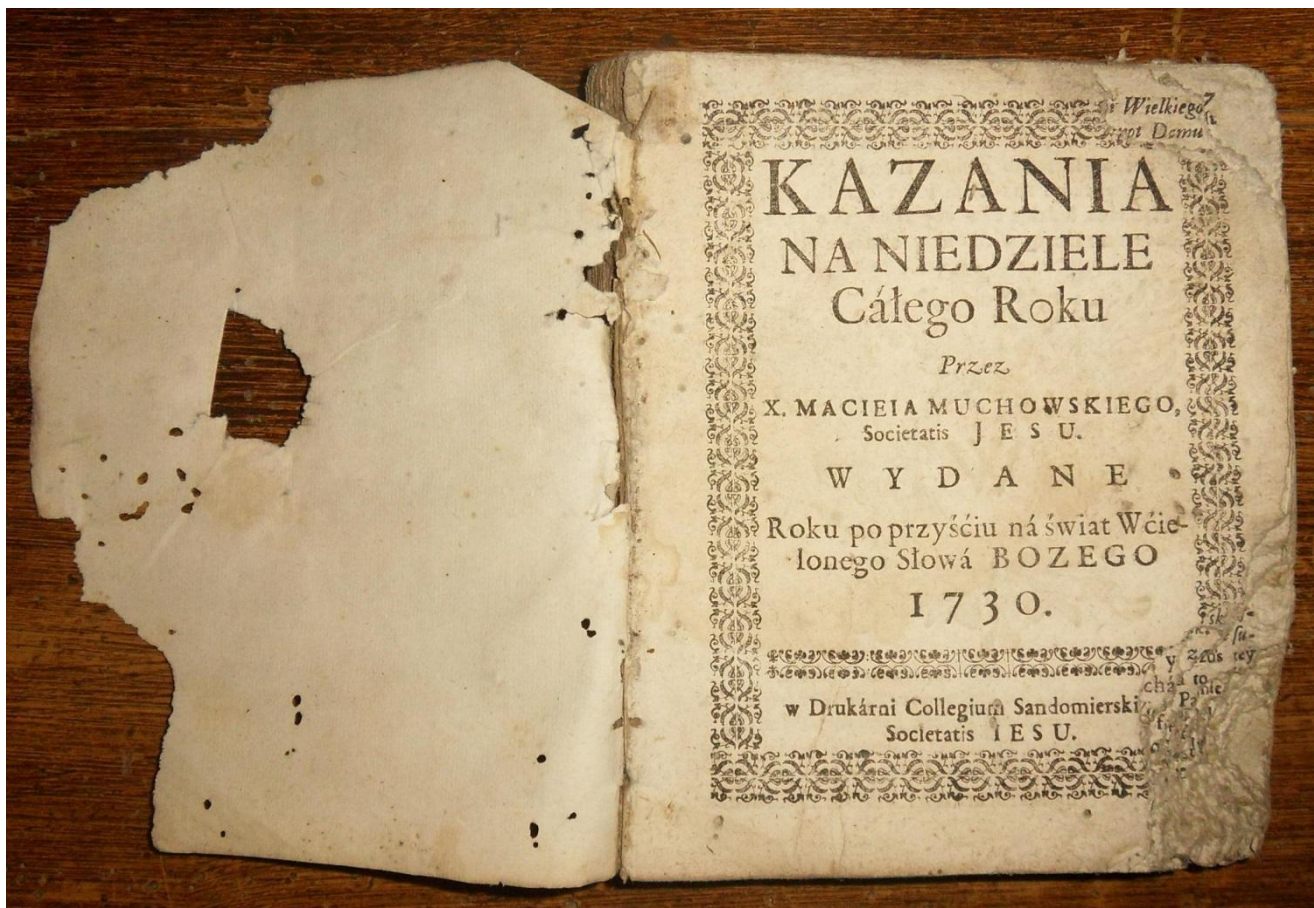 Wielkiego
Domu
KAZANIA
NA NIEDZIELE
Cáłego Roku
Przez
X. MACIEIA MUCHOWSKIEGO,
Societatis JESU.
WYDANE
Roku po przyśćiu ná świat Wćie-
lonego Słowá BOZEGO
1730.
w Drukárni Collegium Sandomierski
Societatis IESU.